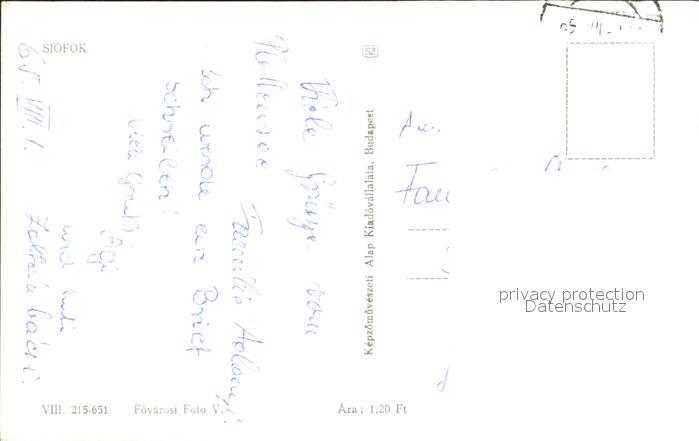 SIÓFOK
SZ
65. VIII. 1.
Viele Grüsse vom
Plattensee
Familie
ich werde ein Brief
schreiben!
viele Gruß
Ági
und
Zoltán bácsi.
Képzőművészeti Alap Kiadóvállalata, Budapest
An.
Fam
privacy protection
Datenschutz
VIII. 215-651
Fővárosi Foto V.
Ára: 1,20 Ft